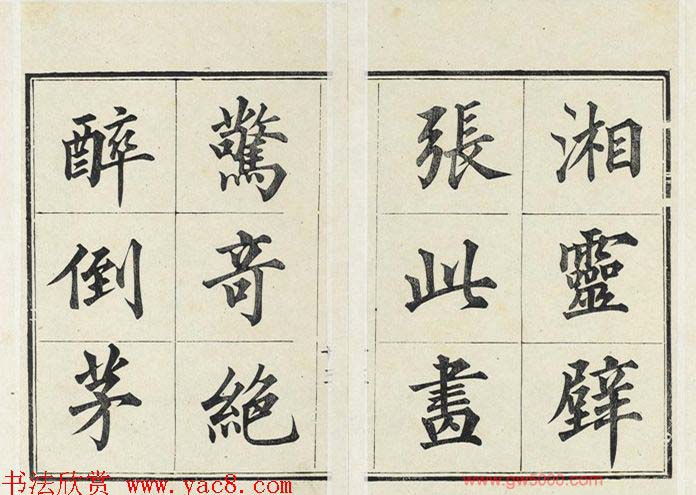 湘靈壁
張此畫
驚奇絕
醉倒茅
书法欣赏 www.yac8.com
www.gw5000.com